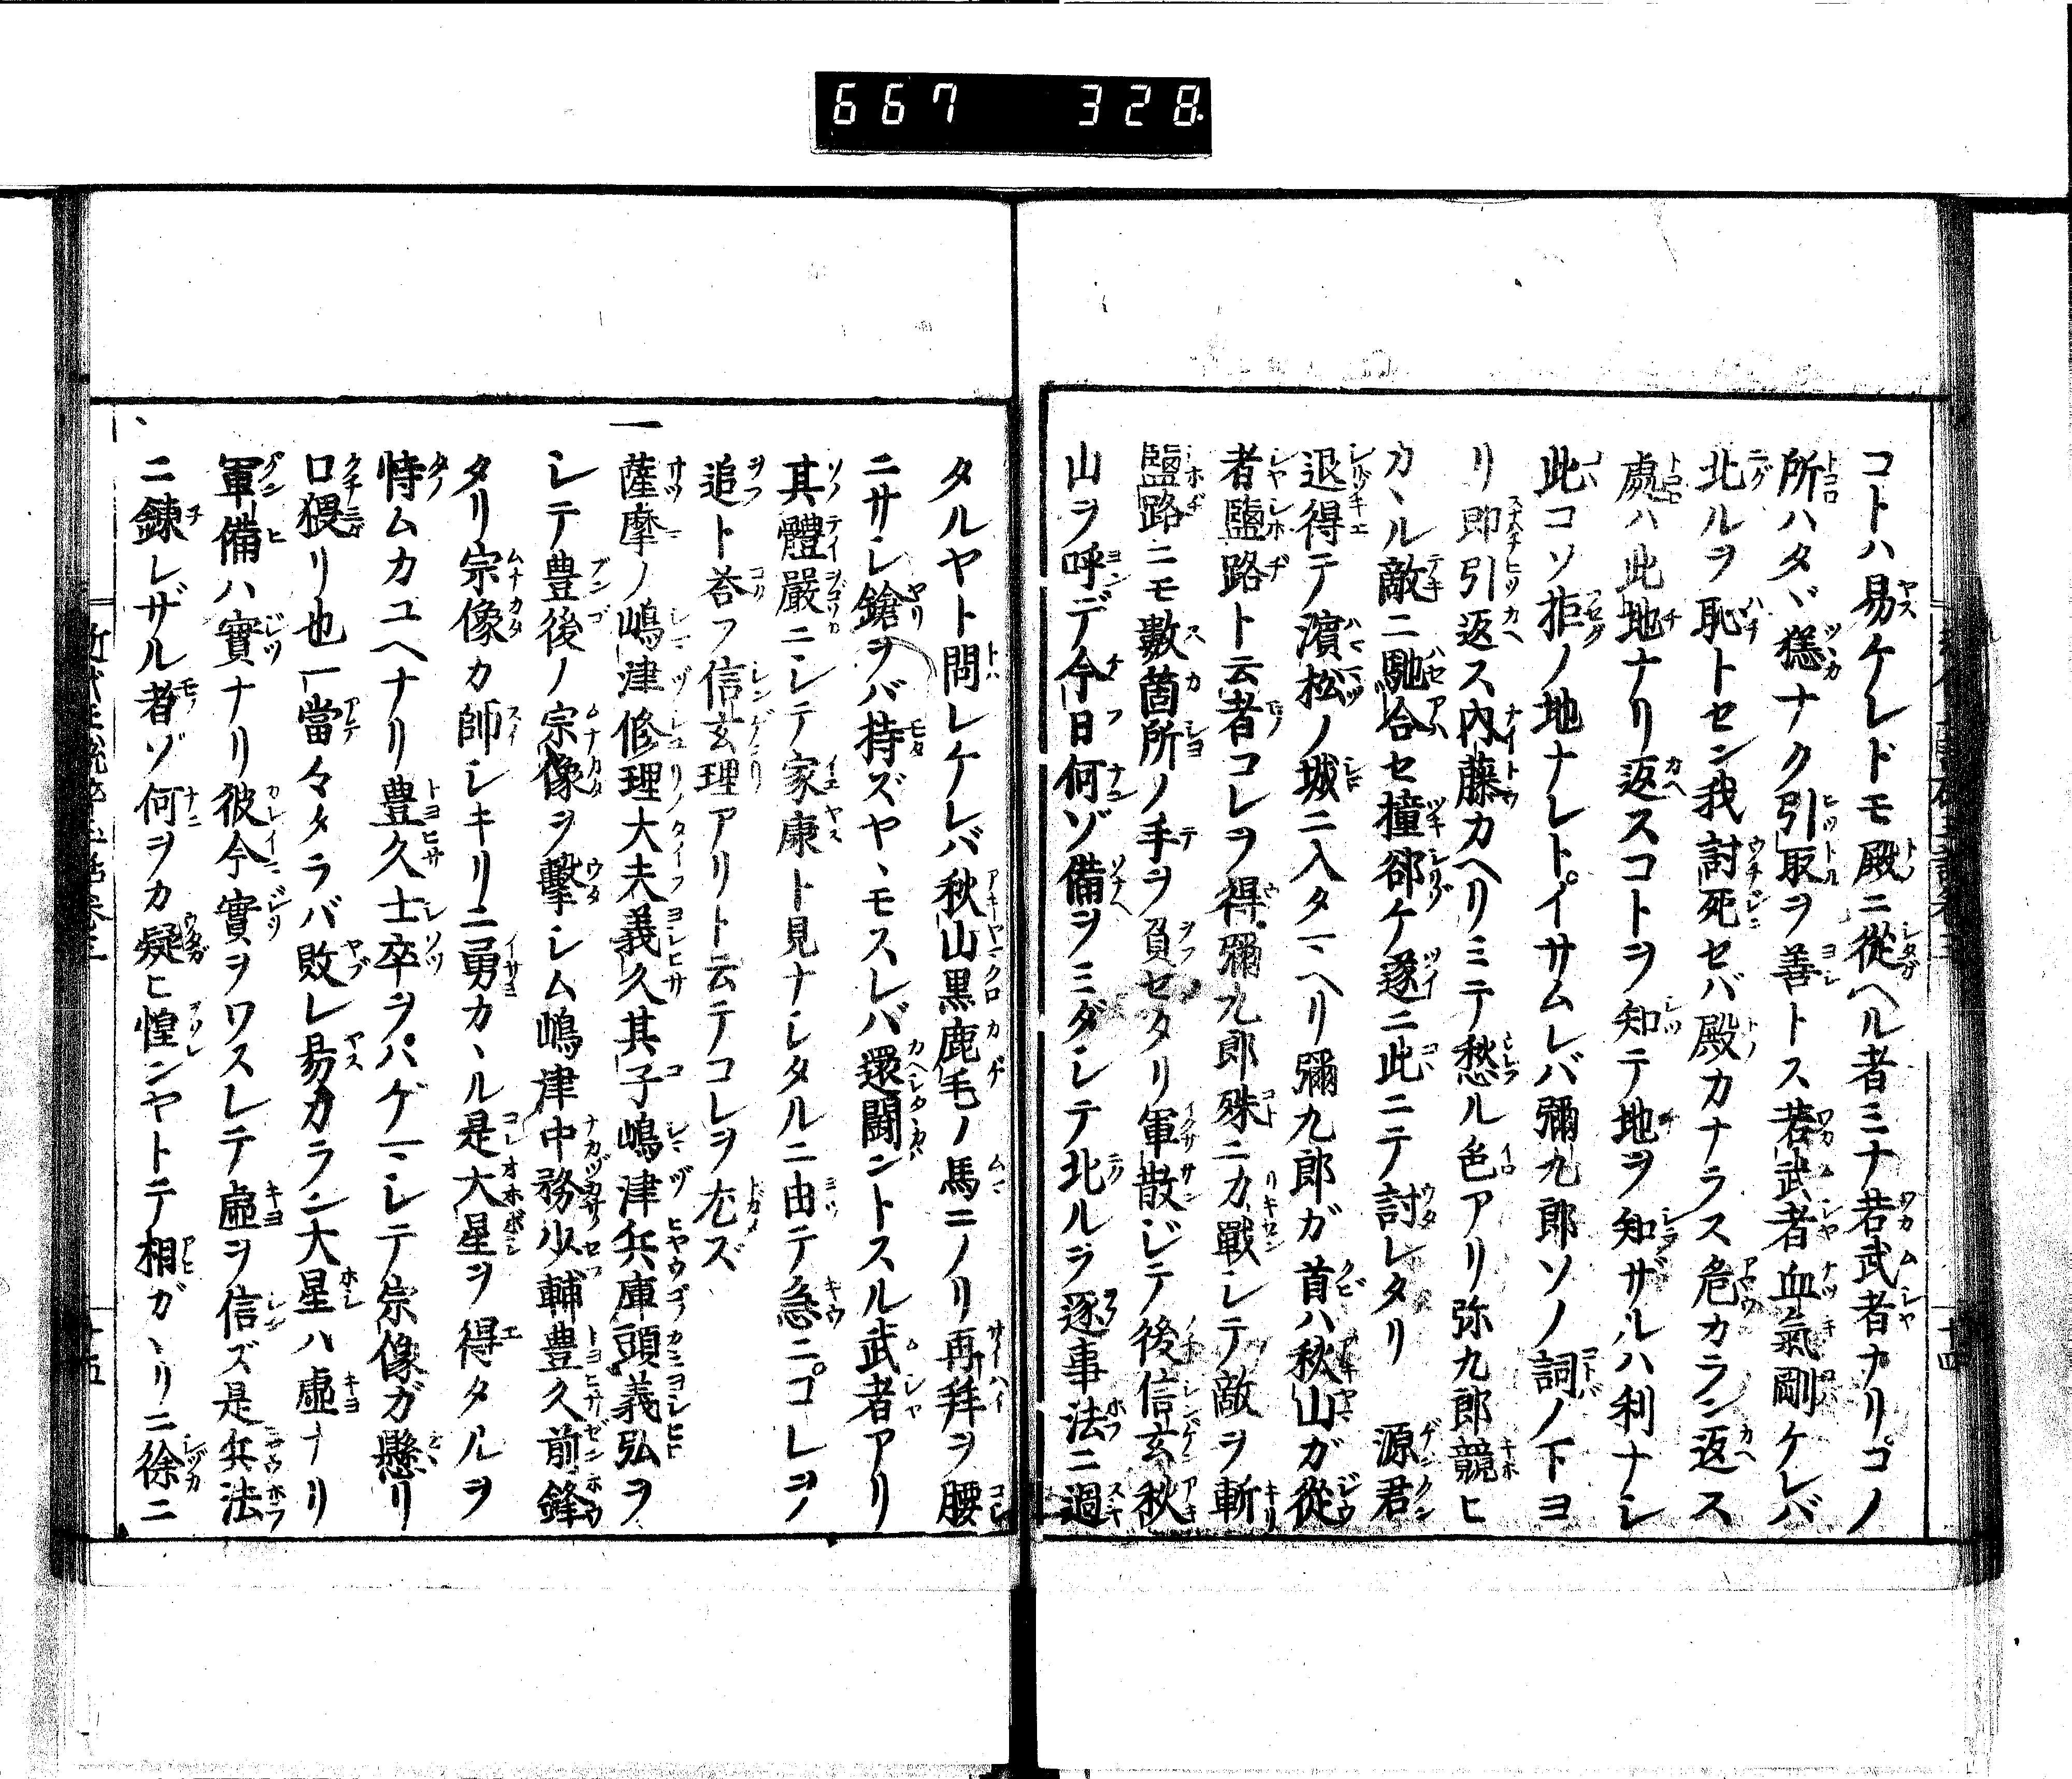 667 328
コトハ易ケレドモ殿ニ從ヘル者ミナ若武者ナリコノ
所ハタヾ慥ナク引取ヲ善トス若武者血氣剛ケレバ
北ルヲ恥トセン我討死セバ殿カナラス危カラン返ス
處ハ此地ナリ返スコトヲ知テ地ヲ知ザルハ利ナシ
此コソ拒ノ地ナレトイサムレバ彌九郎ソノ詞ノ下ヨ
リ即引返ス内藤カヘリミテ愁ル色アリ弥九郎競ヒ
カヽル敵ニ馳合セ撞郤ケ遂ニ此ニテ討レタリ 源君
退得テ濵松ノ城ニ入タマヘリ彌九郎ガ首ハ秋山ガ從
者鹽路ト云者コレヲ得彌九郎殊ニ力戰シテ敵ヲ斬
鹽路ニモ數箇所ノ手ヲ負セタリ軍散ジテ後信玄秋
山ヲ呼デ今日何ゾ備ヲミダシテ北ルヲ逐事法ニ過
タルヤト問レケレバ秋山黒鹿毛ノ馬ニノリ再拜ヲ腰
ニサシ鎗ヲバ持ズヤヽモスレバ還鬪ントスル武者アリ
其體嚴ニシテ家康ト見ナシタルニ由テ急ニコレヲ
追ト荅フ信玄理アリト云テコレヲ尤ズ
一薩摩ノ嶋津修理大夫義久其子嶋津兵庫頭義弘ヲ
シテ豊後ノ宗像ヲ擊シム嶋津中務少輔豊久前鋒
タリ宗像カ師シキリニ勇カヽル是大星ヲ得タルヲ
恃ムカユヘナリ豊久士卒ヲハゲマシテ宗像ガ懸リ
口猥リ也一當々タラバ敗レ易カラン大星ハ虚ナリ
軍備ハ實ナリ彼今實ヲワスレテ虚ヲ信ズ是兵法
ニ錬レザル者ゾ何ヲカ疑ヒ惶ンヤトテ相ガヽリニ徐ニ